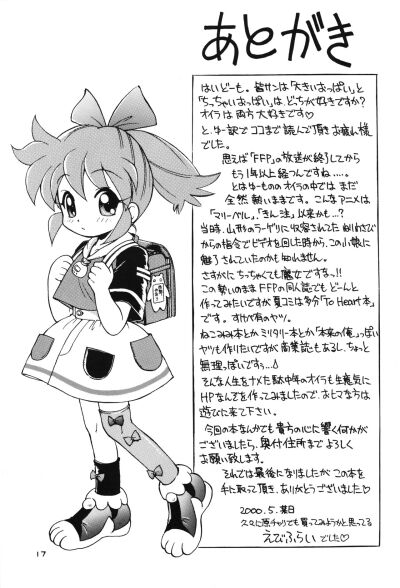 あとがき
はいどーも。皆サンは「大きいおっぱい」と
「ちっちゃいおっぱい」は、どっちが好きですか?
オイラは両方大好きです♡
と、ゆー訳でココまで読んで頂きお疲れ様
でした。
思えば「FFP」の放送が終了してから
もう1年以上経つんですね....。
とはゆーもののオイラの中では まだ
全然 熱いままです。こんなアニメは
「マリーベル」、「きん注」以来かも...?
当時、山形のラーゲリに収容されたねりわさび
からの指令でビデオを回した時から、この小娘に
魅了されていたのかも知れません。
さすがにちっちゃくても魔女ですなっ!!
この勢いのまま FFPの同人誌でもど〜んと
作ってみたいですが夏コミは多分「To Heart本」
です。すけべ有のヤツ。
ねこみみ本とか ミリタリー本とか「本来の俺」っぽい
ヤツも作りたいですが商業誌もあるし、ちょっと
無理っぽいですっ...
そんな人生をナメた駄中年のオイラも生意気に
HPなんぞを作ってみましたので、おヒマな方は
遊びに来て下さい。
今回の本なんかでも貴方の心に響く何かが
ございましたら、奥付住所まで よろしく
お願い致します。
それでは最後になりましたが この本を
手に取って頂き、ありがとうございました♡
2000.5.某日
久々に原チャリでも買ってみようかと思ってる
えびふらい でした♡
17